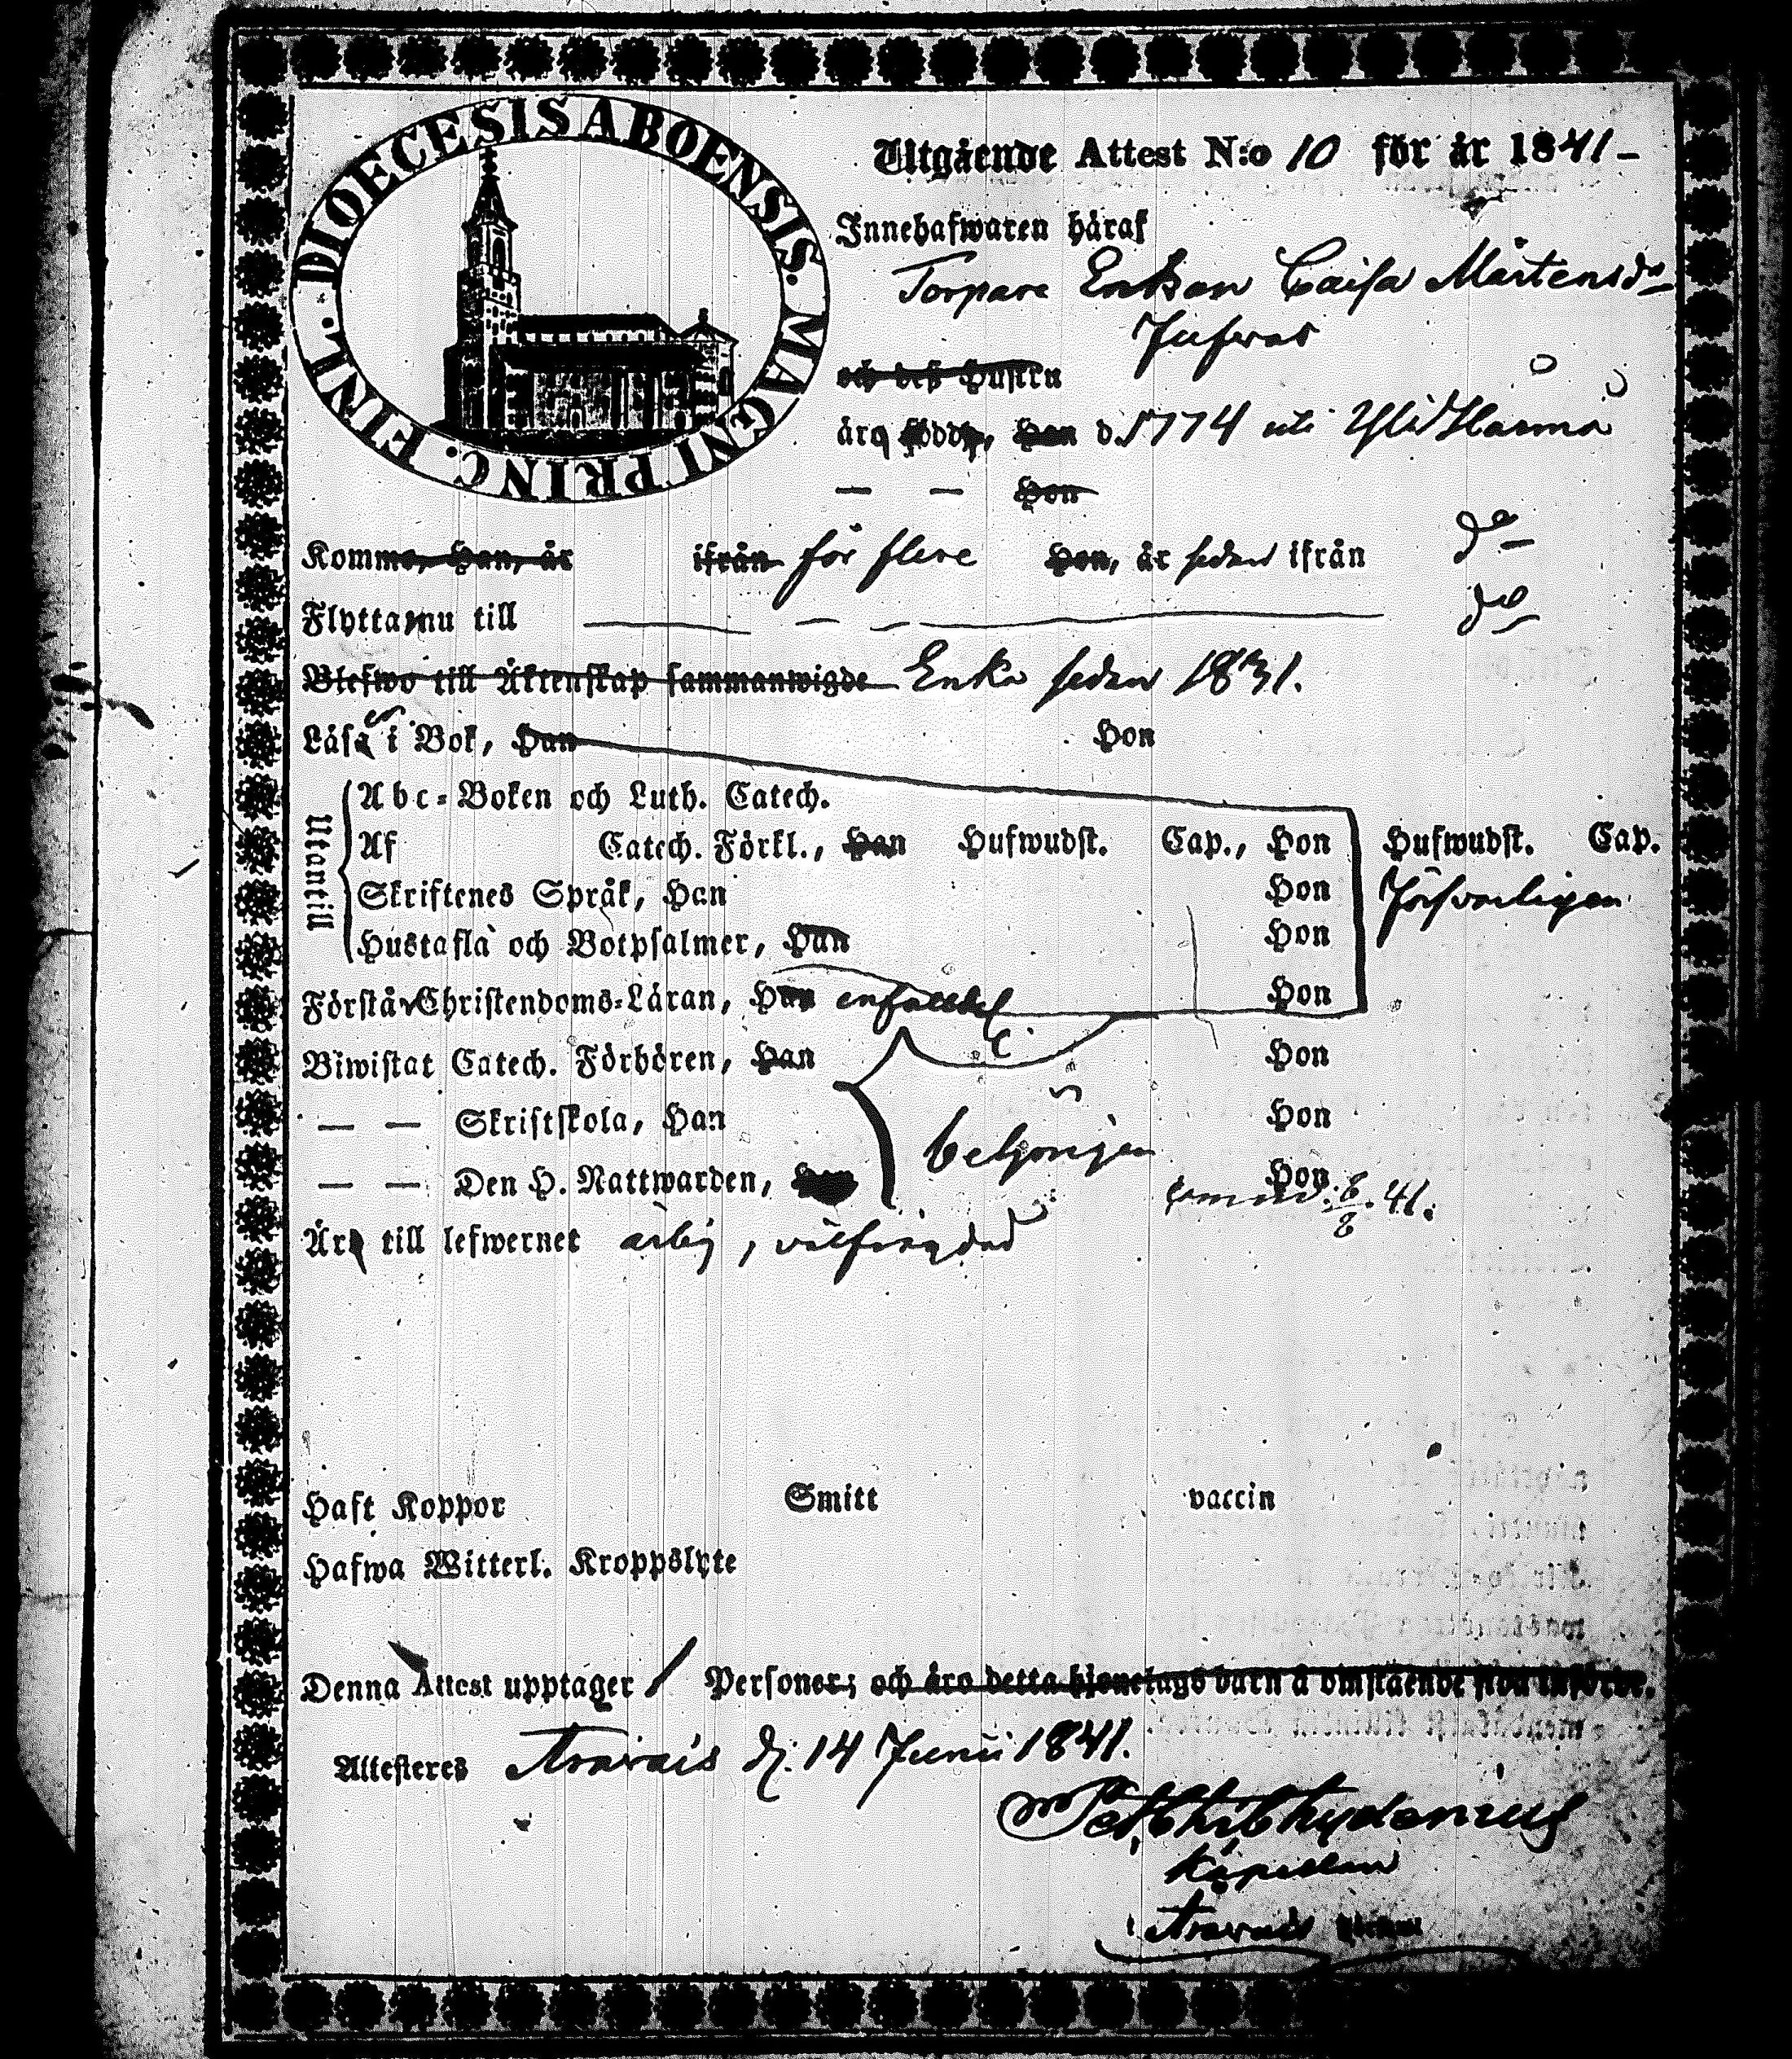 DIOECESIS ABOENSIS. MAGNI PRINC. FINL.
Utgående Attest N:o 10 för år 1841 -
Innehafwaren häraf
Torpare Enkan Caisa Mårtensdr
och deß Hustru
äro födde, Han d. 1774 uti YliHärmä
— — Hon
Komme, Han, år ifrån för flere Hon, år sedan ifrån do
Flytta nu till — — — do
Blefwo till Äktenskap sammanwigde Enka sedan 1831.
Läser i Bok, Han Hon
Utantill
Abc-Boken och Luth. Catech.
Af Catech. Förkl., Han Hufwudst. Cap., Hon Hufwudst. Cap.
Skriftenes Språk, Han Hon Försvarligen
Hustafla och Botpsalmer, Han Hon
Förstår Christendoms-Läran, Han enfaldel. Hon
Biwistat Catech. Förhören, Han Hon
— — Skriftskola, Han behörigen Hon
— — Den H. Nattwarden, Han Hon
41.
Är till lefwernet ärlig, välfrägdad
Haft Koppor Smitt vaccin
Hafwa Witterl. Kroppslyte
Denna Attest upptager 1 Personer; och äro detta hjonelags barn å omstående sida införde.
Attesteres Oravais d. 14 Junii 1841.
Kapellan
Oravais